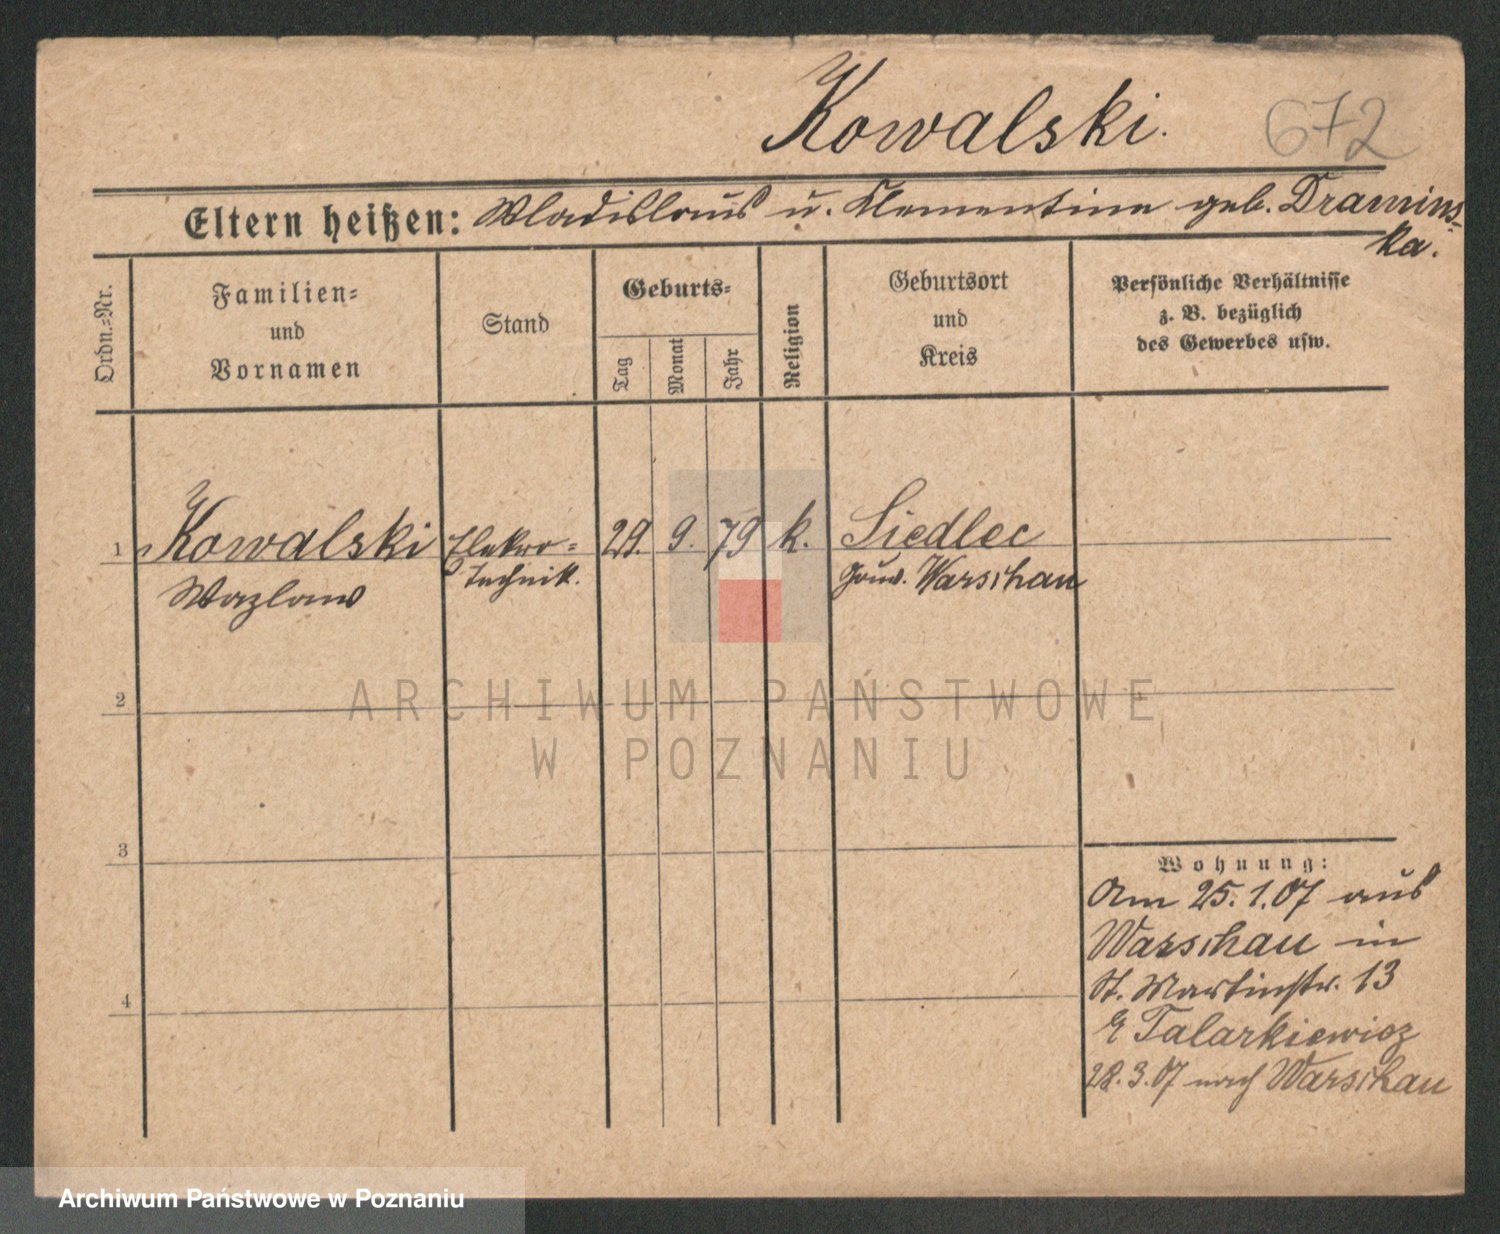 Kowalski.
672
Eltern heißen: Wladislaus u. Klementine geb. Dramins-
ka.
Ordn.=Nr.
Familien=
und
Vornamen
Stand
Geburts=
Tag
Monat
Jahr
Religion
Geburtsort
und
Kreis
Persönliche Verhältnisse
z. B. bezüglich
des Gewerbes usw.
1 Kowalski Elektro= 29. 9. 79 k. Siedlec
Wazlaw Technik. Gouv. Warschau
2
3
4
Wohnung:
Am 25.1.07 aus
Warschau in
St. Martinstr. 13
Talarkiewicz
28.3.07 nach Warschau
ARCHIWUM PAŃSTWOWE
W POZNANIU
Archiwum Państwowe w Poznaniu